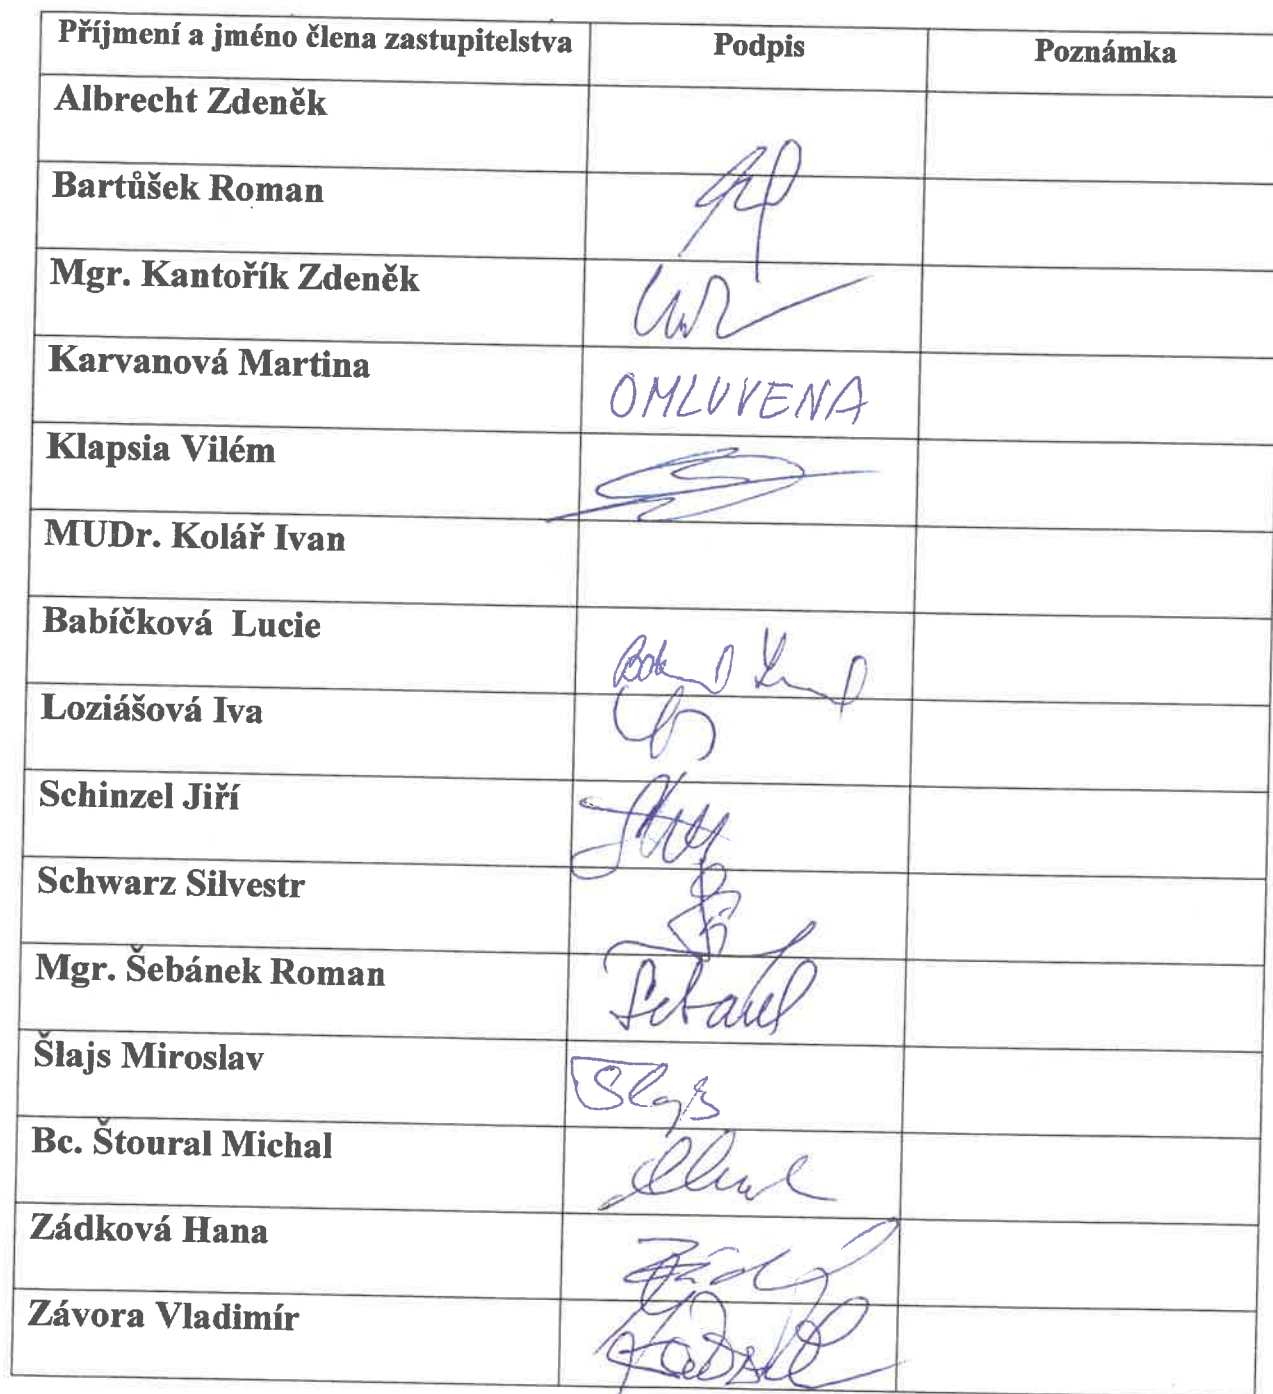 Příjmení a jméno člena zastupitelstva Podpis Poznámka
Albrecht Zdeněk
Bartůšek Roman
Mgr. Kantořík Zdeněk
Karvanová Martina OMLUVENA
Klapsia Vilém
MUDr. Kolář Ivan
Babíčková Lucie
Loziášová Iva
Schinzel Jiří
Schwarz Silvestr
Mgr. Šebánek Roman
Šlajs Miroslav
Bc. Štoural Michal
Zádková Hana
Závora Vladimír